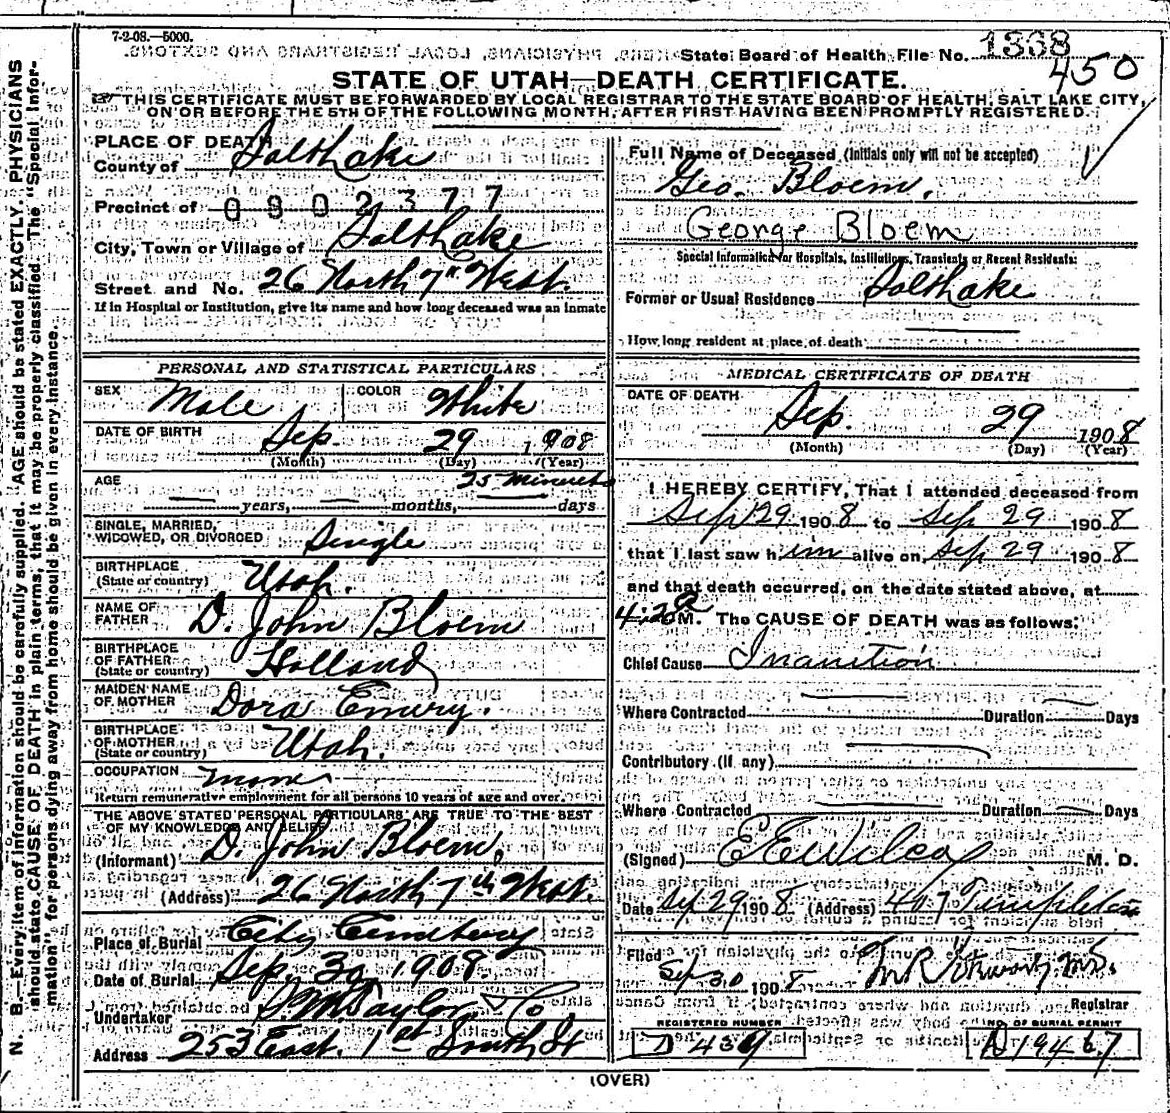 7-2-08.—5000.
State Board of Health File No. 1368
450
STATE OF UTAH—DEATH CERTIFICATE.
THIS CERTIFICATE MUST BE FORWARDED BY LOCAL REGISTRAR TO THE STATE BOARD OF HEALTH, SALT LAKE CITY,
ON OR BEFORE THE 5TH OF THE FOLLOWING MONTH, AFTER FIRST HAVING BEEN PROMPTLY REGISTERED.
PLACE OF DEATH
County of Salt Lake
Precinct of 0802377
City, Town or Village of Salt Lake
Street and No. 26 North 7th West.
If in Hospital or Institution, give its name and how long deceased was an Inmate
PERSONAL AND STATISTICAL PARTICULARS
SEX Male COLOR White
DATE OF BIRTH Sep. 29 1908
(Month) (Day) (Year)
AGE 25 minutes
years, months, days
SINGLE, MARRIED,
WIDOWED, OR DIVORCED Single
BIRTHPLACE
(State or country) Utah.
NAME OF
FATHER D. John Bloem
BIRTHPLACE
OF FATHER
(State or country) Holland
MAIDEN NAME
OF MOTHER Dora Emery.
BIRTHPLACE
OF MOTHER
(State or country) Utah.
OCCUPATION none
Return remunerative employment for all persons 10 years of age and over.
THE ABOVE STATED PERSONAL PARTICULARS ARE TRUE TO THE BEST
OF MY KNOWLEDGE AND BELIEF
(Informant) D. John Bloem,
(Address) 26 North 7th West.
Place of Burial City Cemetery
Date of Burial Sep. 30, 1908.
Undertaker S. M. Taylor & Co
Address 253 East. 1st South St
Full Name of Deceased (Initials only will not be accepted)
Geo. Bloem.
George Bloem
Special Information for Hospitals, Institutions, Transients or Recent Residents:
Former or Usual Residence Salt Lake
How long resident at place of death
MEDICAL CERTIFICATE OF DEATH
DATE OF DEATH
Sep. 29 1908
(Month) (Day) (Year)
I HEREBY CERTIFY, That I attended deceased from
Sep 29 1908 to Sep 29 1908
that I last saw him alive on Sep 29 1908
and that death occurred, on the date stated above, at
4:20 a M. The CAUSE OF DEATH was as follows:
Chief Cause Inanition
Where Contracted Duration Days
Contributory (if any)
Where Contracted Duration Days
(Signed) E E Wilcox M. D.
Date Sep 29 1908 (Address) 407 Templeton
Filed Sep 30 1908
Registrar
REGISTERED NUMBER NO. OF BURIAL PERMIT
D 439 A 19467
(OVER)
N. B.—Every item of information should be carefully supplied. AGE should be stated EXACTLY. PHYSICIANS
should state CAUSE OF DEATH in plain terms, that it may be properly classified. The "Special Infor-
mation" for persons dying away from home should be given in every instance.